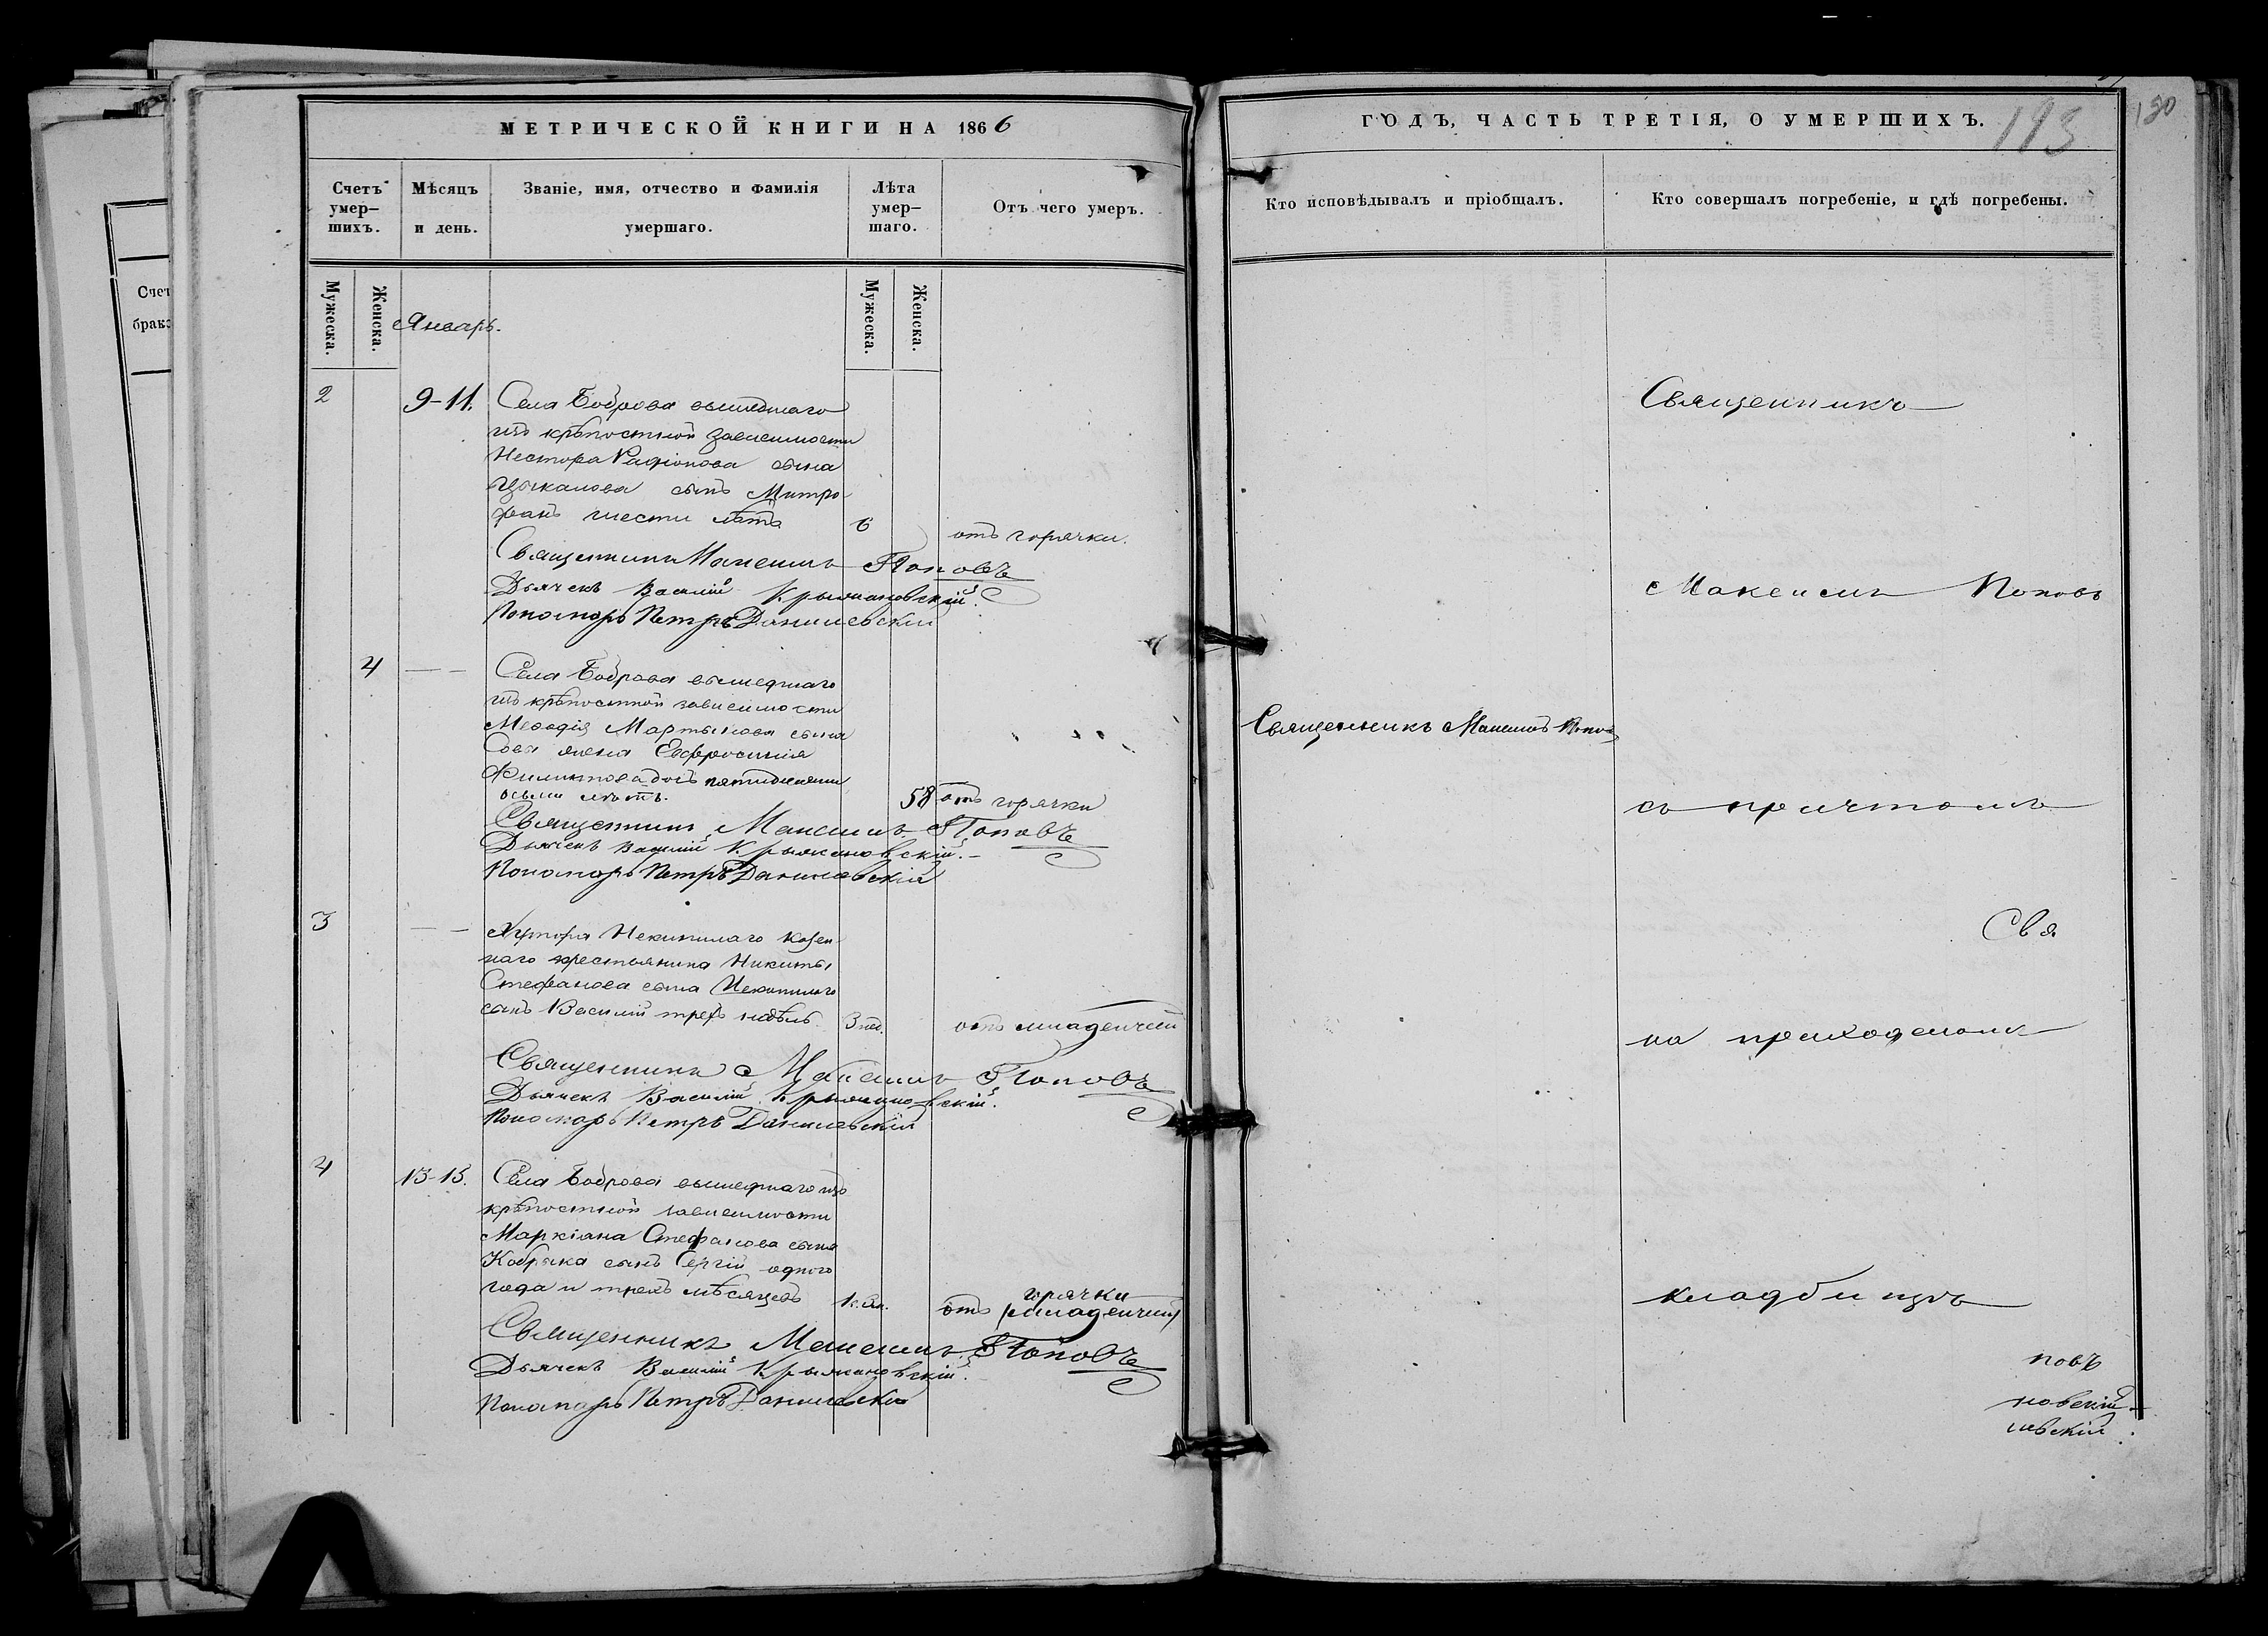 МЕТРИЧЕСКОЙ КНИГИ НА 1866
Счетъ умер-шихъ.
Мѣсяцъ и день.
Званіе, имя, отчество и фамилія умершаго.
Лѣта умер-шаго.
Отъ чего умеръ.
Мужеска.
Женска.
Январь.
Мужеска.
Женска.
2
9-11.
Села Боброва вышедшаго
изъ крѣпостной зависимости
Нестора Родіонова сына
Цыканова сынъ Митро
фанъ шести лѣтъ
6
отъ горячки.
Священникъ Максимъ Поповъ
Дьячекъ Василій Крыжановскій.
Пономарь Петръ Данилевскій
4
— —
Села Боброва вышедшаго
изъ крѣпостной зависимости
Меѳодія Мартынова сына
жена Евфросинія
Филиппова дочь пятидесяти
осьми лѣтъ.
58
отъ горячки
Священникъ Максимъ Поповъ
Дьячекъ Василій Крыжановскій.
Пономарь Петръ Данилевскій
3
— —
Хутора Некипилаго казен
наго крестьянина Никиты
Стефанова сына Некипилаго
сынъ Василій трехъ недѣль
3 нед.
отъ младенчей
Священникъ Максимъ Поповъ
Дьячекъ Василій Крыжановскій.
Пономарь Петръ Данилевскій
4
13-15.
Села Боброва вышедшаго изъ
крѣпостной зависимости
Маркіана Стефанова сына
Кобряка сынъ Сергій одного
года и трехъ мѣсяцевъ
горячки
отъ (младенчей)
Священникъ Максимъ Поповъ
Дьячекъ Василій Крыжановскій.
Пономарь Петръ Данилевскій
ГОДЪ, ЧАСТЬ ТРЕТІЯ, О УМЕРШИХЪ.
193
190
Кто исповѣдывалъ и пріобщалъ.
Кто совершалъ погребеніе, и гдѣ погребены.
Священникъ
Максимъ Поповъ
Священникъ Максимъ Попов
съ причтомъ
Свя
на приходскомъ
кладбищѣ
повъ
новскій
левскій
Счет
брако